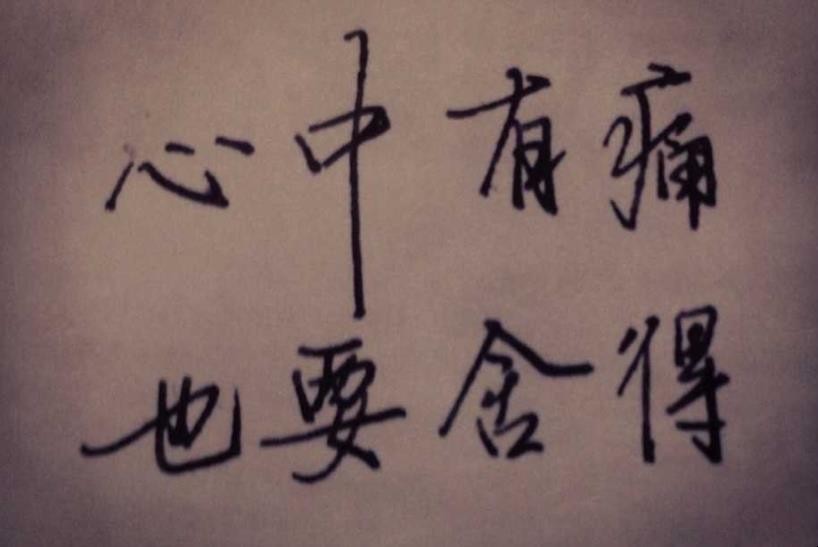 心中有痛
也要舍得